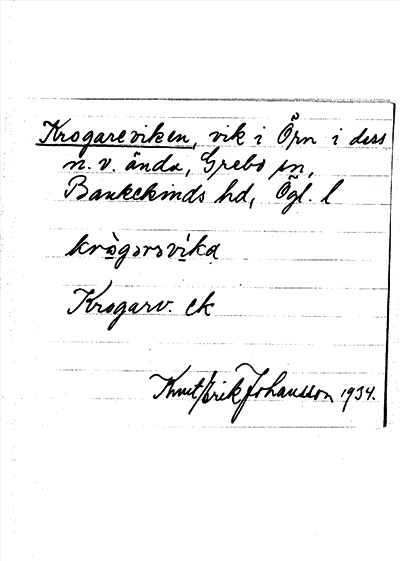 Krogareviken, vik i Örn i dess
n.v. ända, Grebo sn,
Bankekinds hd, Ögl. l
krò̱gərəvi̱ka
Krogarv. ek
Knut Erik Johansson 1934.